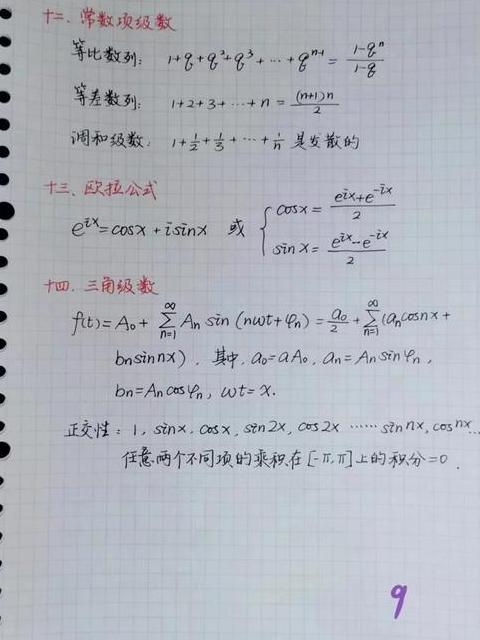 十二、常数项级数
等比数列: 1+q+q²+q³+⋯+qⁿ⁻¹ = (1-qⁿ)/(1-q)
等差数列: 1+2+3+⋯+n = (n+1)n/2
调和级数: 1+1/2+1/3+⋯+1/n 是发散的
十三、欧拉公式
e^{ix}=cosx+isinx 或 { cosx = (e^{ix}+e^{-ix})/2
sinx = (e^{ix}-e^{-ix})/2
十四、三角级数
f(t)=A₀+∑_{n=1}^{∞} Aₙ sin(nωt+φₙ) = a₀/2 + ∑_{n=1}^{∞}(aₙcosnx+
bₙsinnx), 其中, a₀=aA₀, aₙ=Aₙsinφₙ,
bₙ=Aₙcosφₙ, ωt=x.
正交性: 1, sinx, cosx, sin2x, cos2x ⋯⋯ sinnx, cosnx…
任意两个不同项的乘积在[-π,π]上的积分=0.
9